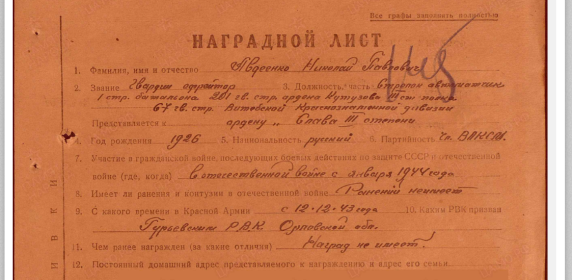 Все графы заполнять полностью
НАГРАДНОЙ ЛИСТ
1. Фамилия, имя и отчество Авдеенко Николай Павлович
2. Звание Гвардии ефрейтор 3. Должность, часть Стрелок автоматчик
1 стр. батальона 201 гв. стр. ордена Кутузова полка
67 гв. стр. Витебской Краснознаменной дивизии
Представляется к ордену „Слава III степени
4. Год рождения 1926 5. Национальность русский 6. Партийность чл. ВЛКСМ.
7. Участие в гражданской войне, последующих боевых действиях по защите СССР и отечественной
войне (где, когда) В отечественной войне с января 1944 года
8. Имеет ли ранения и контузии в отечественной войне Ранений не имеет
9. С какого времени в Красной Армии с 12-12-43 года 10. Каким РВК призван
Р.В.К. Орловской обл.
11. Чем ранее награжден (за какие отличия) Наград не имеет.
12. Постоянный домашний адрес представляемого к награждению и адрес его семьи